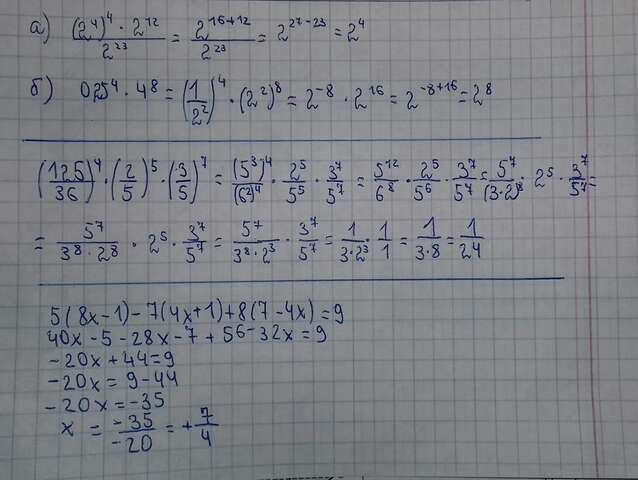 а) (2⁴)⁴ · 2¹² / 2²³ = 2¹⁶⁺¹² / 2²³ = 2²⁷⁻²³ = 2⁴
б) 025⁴ · 4⁸ = (1/2²)⁴ · (2²)⁸ = 2⁻⁸ · 2¹⁶ = 2⁻⁸⁺¹⁶ = 2⁸
(125/36)⁴ · (2/5)⁵ · (3/5)⁷ = (5³)⁴/(6²)⁴ · 2⁵/5⁵ · 3⁷/5⁷ = 5¹²/6⁸ · 2⁵/5⁶ · 3⁷/5⁷ = 5⁷/(3·2)⁸ · 2⁵ · 3⁷/5⁷ =
= 5⁷/3⁸·2⁸ · 2⁵ · 3⁷/5⁷ = 5⁷/3⁸·2³ · 3⁷/5⁷ = 1/3·2³ · 1/1 = 1/3·8 = 1/24
5(8x-1)-7(4x+1)+8(7-4x)=9
40x-5-28x-7+56-32x=9
-20x+44=9
-20x=9-44
-20x=-35
x = -35/-20 = +7/4